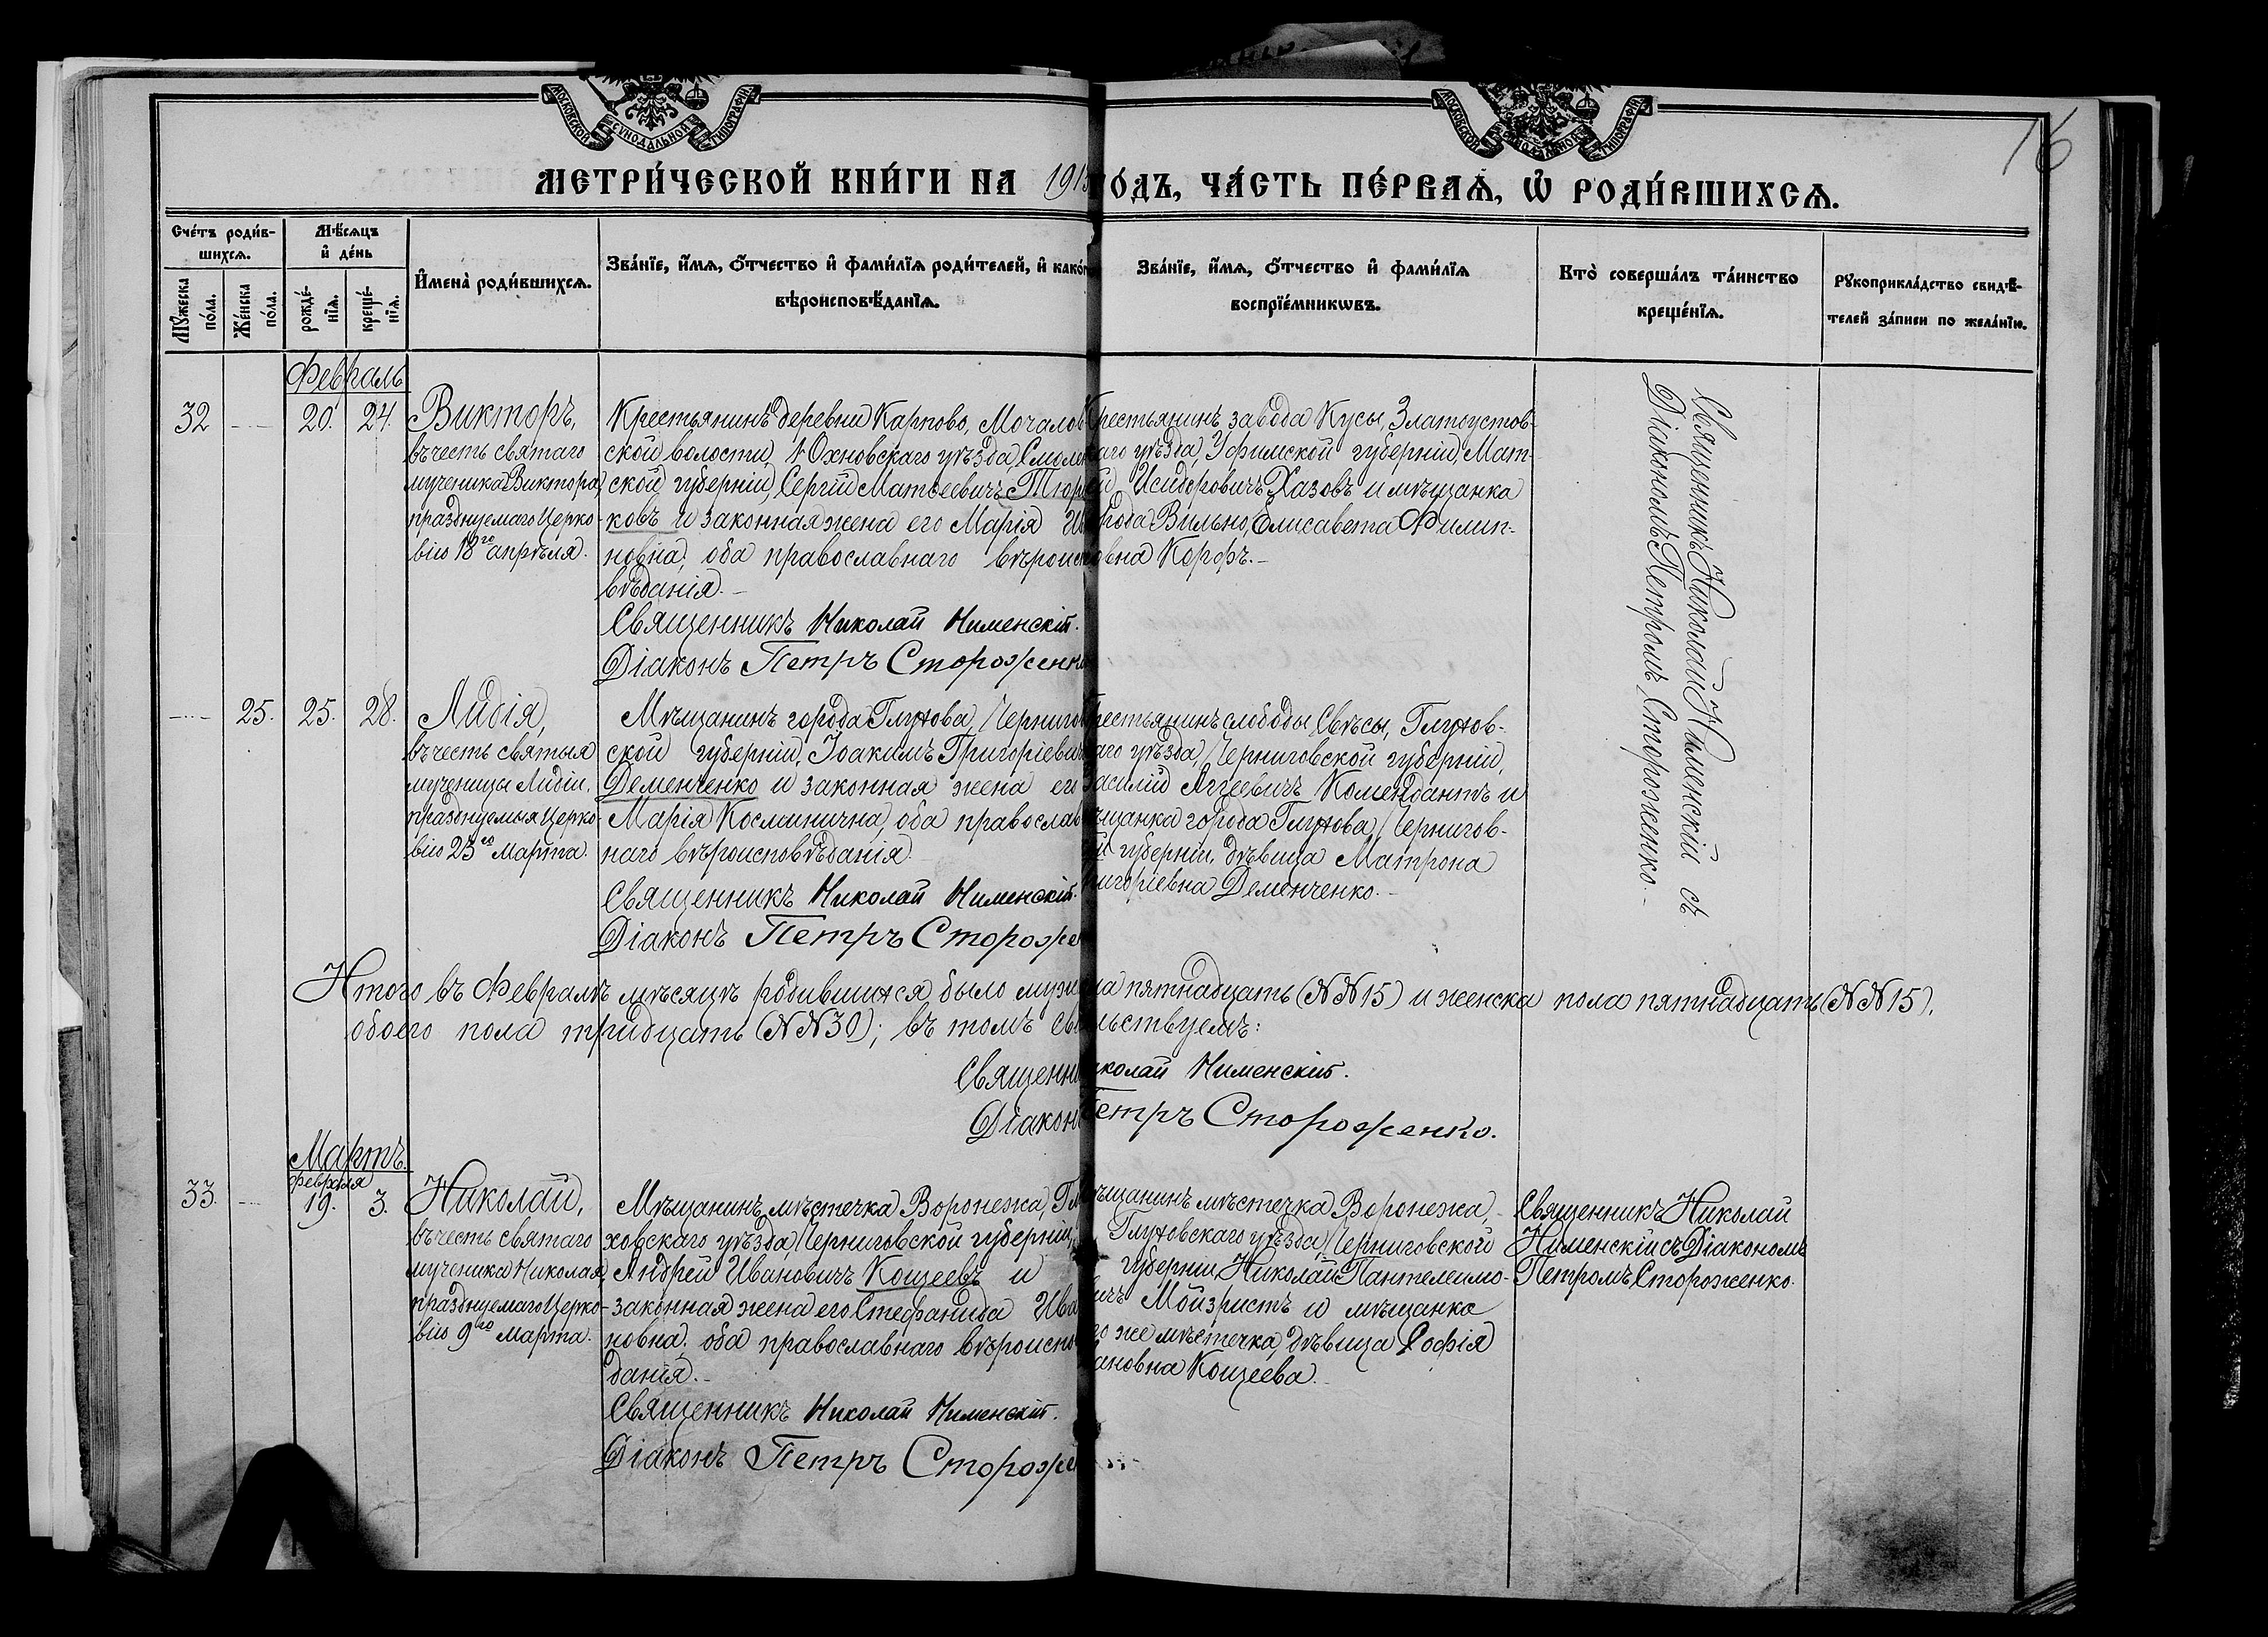 МОСКОВСКОЙ СѴНОДАЛЬНОЙ ТИПОГРАФІИ
МОСКОВСКОЙ СѴНОДАЛЬНОЙ ТИПОГРАФІИ
16
МЕТРИ́ЧЕСКОЙ КНИ́ГИ НА 191
О́ДЪ, ЧА́СТЬ ПЕ́РВАѦ, Ѽ РОДИ́ВШИХСѦ.
Сче́тъ роди́в-
шихсѧ.
Мѣ́сѧцъ
и҆ де́нь
Му́жеска
по́ла.
Же́нска
по́ла.
рожде́-
нїѧ.
креще́-
нїѧ.
И҆мена̀ роди́вшихсѧ.
Зва́нїе, и҆́мѧ, ѻ҆́тчество и҆ фами́лїѧ роди́телей, и҆ како́г
вѣроисповѣ́данїѧ.
Зва́нїе, и҆́мѧ, ѻ҆́тчество и҆ фами́лїѧ
воспрїе́мникѡвъ.
Кто̀ соверша́лъ та́инство
креще́нїѧ.
Рꙋкоприкла́дство свидѣ́-
телей за́писи по жела́нїю.
Февраль
32 20. 24. Викторъ,
въ честь святаго
мученика Виктора,
празднуемаго Церко-
вію 18го апрѣля.
Крестьянинъ деревни Карпово, Мочалов
ской волости, Юхновскаго уѣзда, Смолен
ской губерніи, Сергій Матѳеевичъ Тюр
ковъ и законная жена его Марія Ив
новна, оба православнаго вѣроиспо
вѣданія. –
Священникъ Николай Нименскій.
Діаконъ Петръ Стороженк
рестьянинъ завода Кусы, Златоустов-
аго уѣзда, Уфимской губерніи, Мат-
й Исидоровичъ Хазовъ и мѣщанка
рода Вильно, Елисавета Филип-
овна Корфъ. –
Священникъ Николай Нименскій съ
Діакономъ Петромъ Стороженко. –
25. 25. 28. Лидія,
въ честь святыя
мученицы Лидіи,
празднуемыя Церко-
вію 23го Марта.
Мѣщанинъ города Глухова, Чернигов
ской губерніи, Іоакимъ Григоріевич
Деменченко и законная жена ег
Марія Косминична, оба православ
наго вѣроисповѣданія. –
Священникъ Николай Нименскій.
Діаконъ Петръ Стороже
рестьянинъ слободы Свѣсы, Глухов-
аго уѣзда, Черниговской губерніи,
асилій Аггеевичъ Комендантъ и
щанка города Глухова, Чернигов-
й губерніи, дѣвица Матрона
игоріевна Деменченко. –
Итого въ Февралѣ мѣсяцѣ родившихся было муже
ла пятнадцать (№№15) и женска пола пятнадцать (№№15),
обоего пола тридцать (№№30); въ томъ сви
льствуемъ:
Священни
иколай Нименскій.
Діакон
етръ Стороженко.
Мартъ.
февраля
33. 19. 3. Николай,
въ честь святаго
мученика Николая,
празднуемаго Церко-
вію 9го Марта.
Мѣщанинъ мѣстечка Воронежа, Гл
ховскаго уѣзда, Черниговской губерніи,
Андрей Ивановичъ Кощеевъ и
законная жена его Стефанида Ива
новна, оба православнаго вѣроиспо
данія. –
Священникъ Николай Нименскій.
Діаконъ Петръ Стороже
ѣщанинъ мѣстечка Воронежа,
Глуховскаго уѣзда, Черниговской
губерніи, Николай Пантелеимо-
ичъ Мойзристъ и мѣщанка
го же мѣстечка, дѣвица Софія
ановна Кощеева. –
Священникъ Николай
Нименскій съ Діакономъ
Петромъ Стороженко.